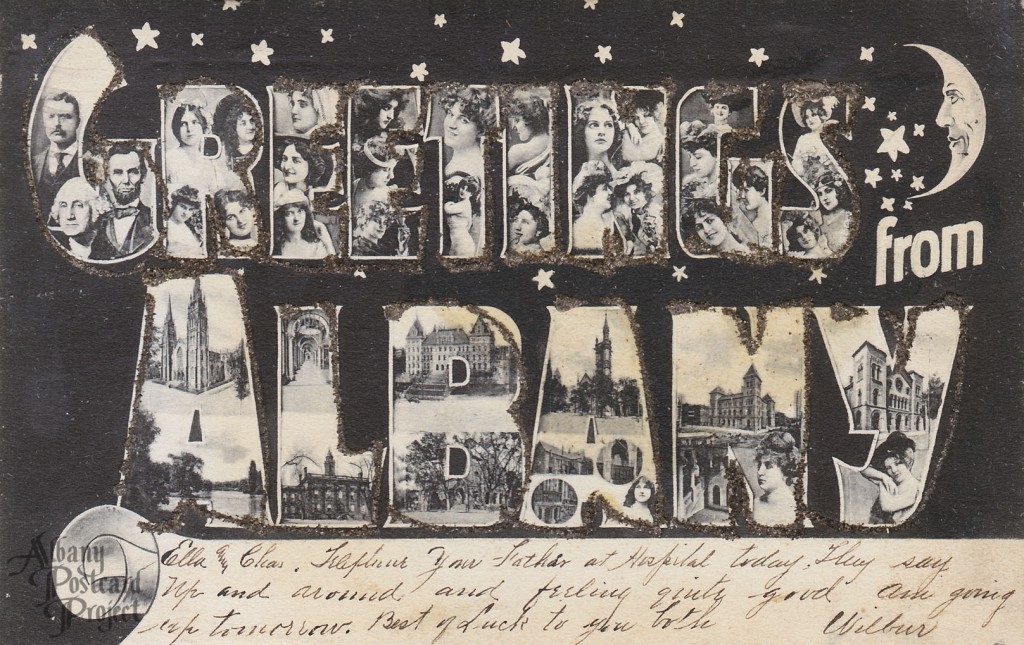 GREETINGS
from
ALBANY
Albany
Postcard
Project
Ella & Chas. Telephone Your Father at Hospital today. They say
Up and around and feeling quite good am going
up tomorrow. Best of Luck to you both
Wilbur